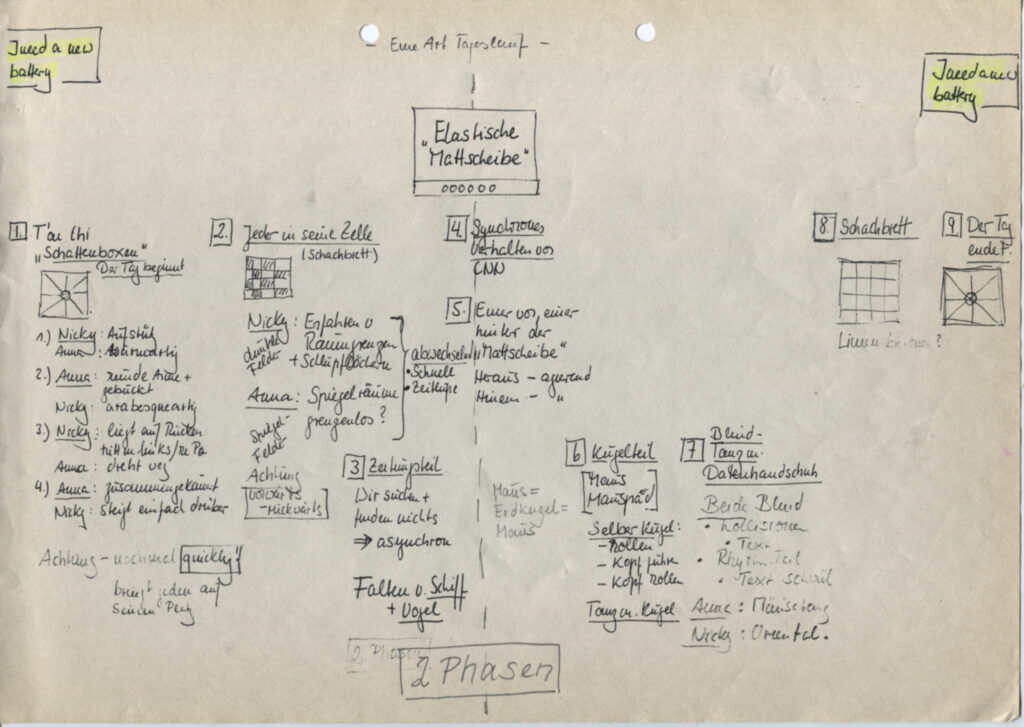 - Eine Art Tageslauf -
I need a new
battery
I need a new
battery
"Elastische
Mattscheibe"
1. T'ai Chi
"Schattenboxen"
Der Tag beginnt
1.) Nicky: Aufstüh
Anna:
2.) Anna: runde Arme +
gebückt
Nicky: arabesqueartig
3.) Nicky: liegt auf Rücken
tritt n. links/re Pa
Anna: dreht weg
4.) Anna: zusammengekauert
Nicky: steigt einfach drüber
Achtung - nochmal "quickly"
bringt jeden auf
seinen
2. Jeder in seine Zelle
(Schachbrett)
Nicky: Erfahren v
Raumgrenzen
+ Schlupflöchern
dunkle
Felder
Anna: Spiegelräume
grenzenlos?
Spiegel-
Felder
Achtung
vorwärts
- rückwärts
abwechselnd
• Schnelle
• Zeitlupe
3 Zeitungsteil
Wir suchen +
finden nichts
⇒ asynchron
Falten v. Schiff
+ Vogel
4. Synchrones
Verhalten vor
CNN
5. Einer vor, einer
hinter der
"Mattscheibe"
Heraus - agierend
Hinein - "
Maus =
Erdkugel =
Maus
6 Kugelteil
Maus
Mauspad
Selber Kugel:
- rollen
- Kopf führe
- Kopf rollen
Tanz m. Kugel
7 Blind-
Tanz m.
Datenhandschuh
Beide Blind
• Kollisionen
• Text
• Rhythm. Teil
• Text schnell
Anna:
Nicky: Oriental.
8. Schachbrett
Linien
9. Der Tag
endet.
2 Phasen
2 Phasen